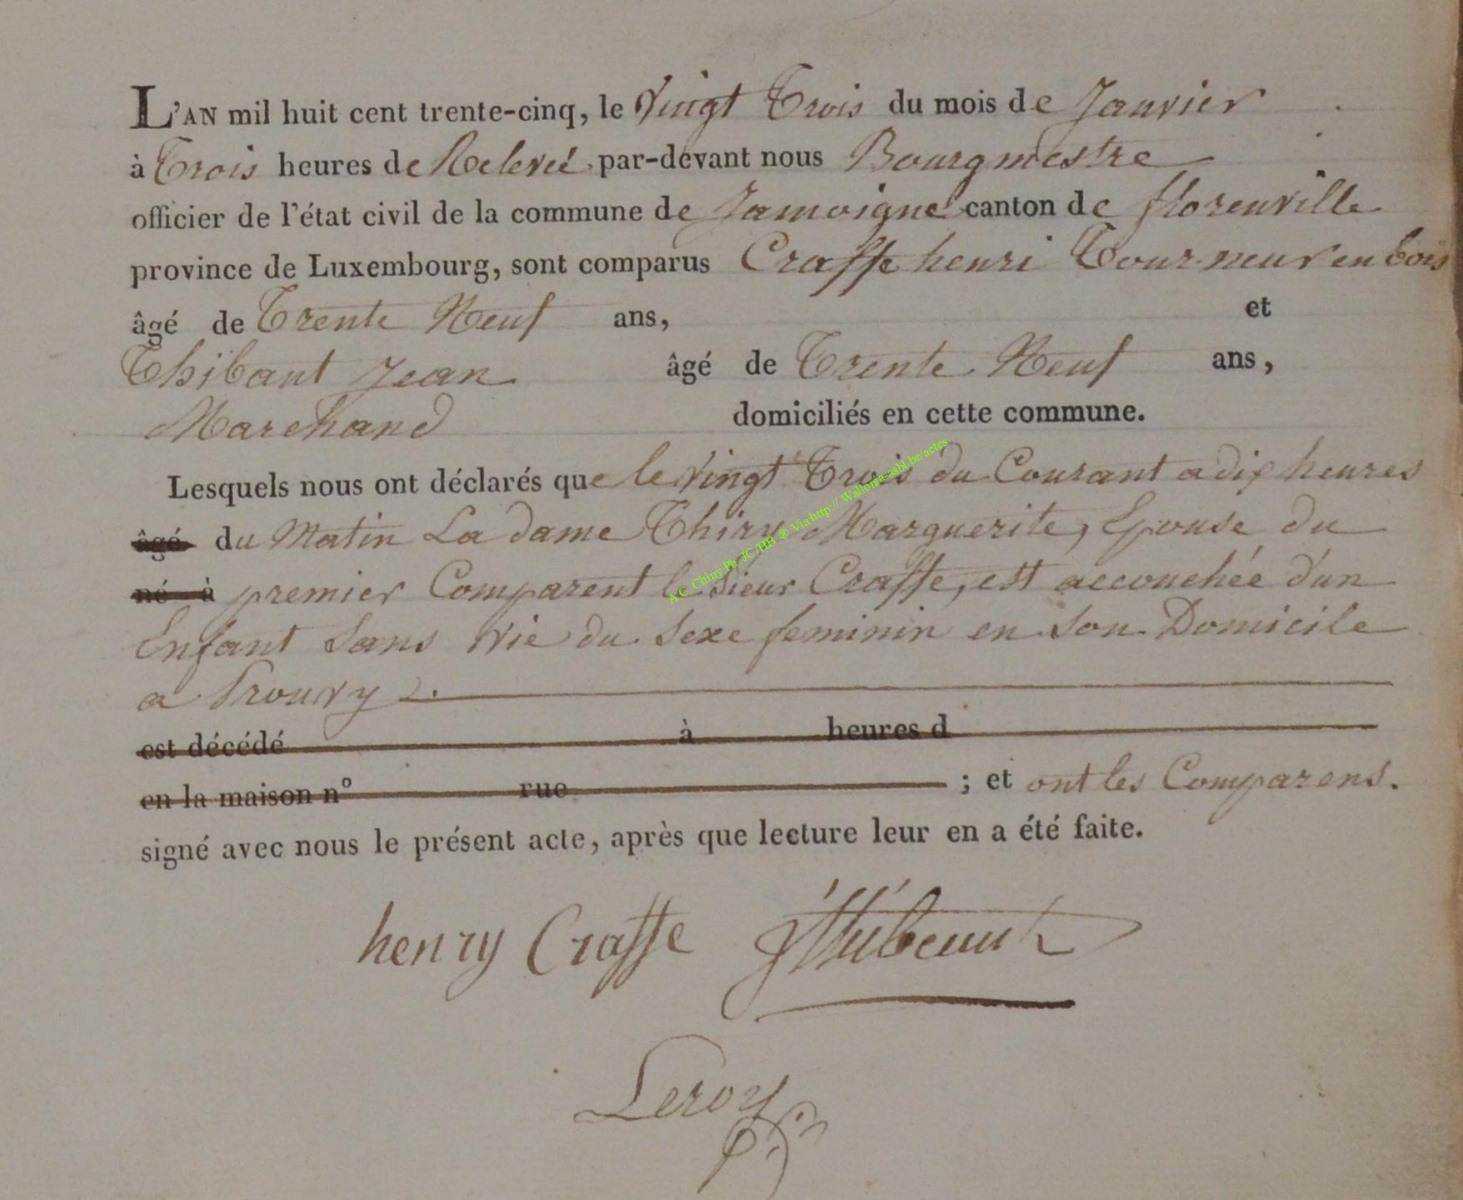 L'AN mil huit cent trente-cinq, le Vingt Trois du mois de Janvier
à Trois heures de Relevée par-devant nous Bourgmestre
officier de l'état civil de la commune de Jamoigne canton de florenville
province de Luxembourg, sont comparus Crasse henri Tourneur en bois
âgé de Trente Neuf ans, et
Thibaut Jean âgé de Trente Neuf ans,
Marchand domiciliés en cette commune.
Lesquels nous ont déclarés que le Vingt Trois du Courant a dix heures
âgé du Matin La dame Thiry Marguerite, Epouse du
né à premier Comparent le Sieur Crasse, est accouchée d'un
Enfant Sans Vie du Sexe feminin en Son Domicile
a Prouvy
est décédé à heures d
en la maison n° rue ; et ont les Comparens.
signé avec nous le présent acte, après que lecture leur en a été faite.
henry Crasse JThibeaut
Leroy